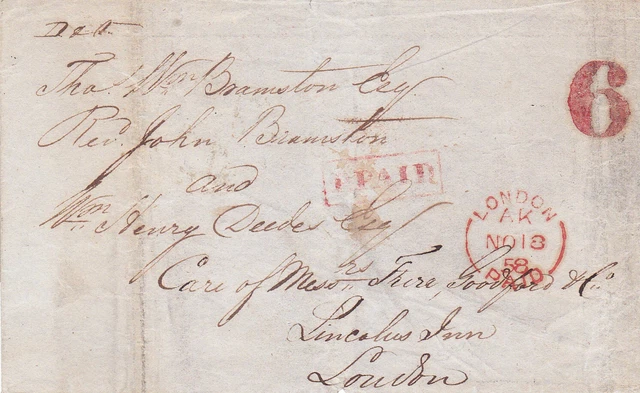 Thos Wm Bramston Esq
6
Revd John Bramston
and
PAID
Wm Henry Deedes Esq
LONDON
AK
NO 18
58
PAID
Care of Messrs Frere, Goodford & Co
Lincolns Inn
London